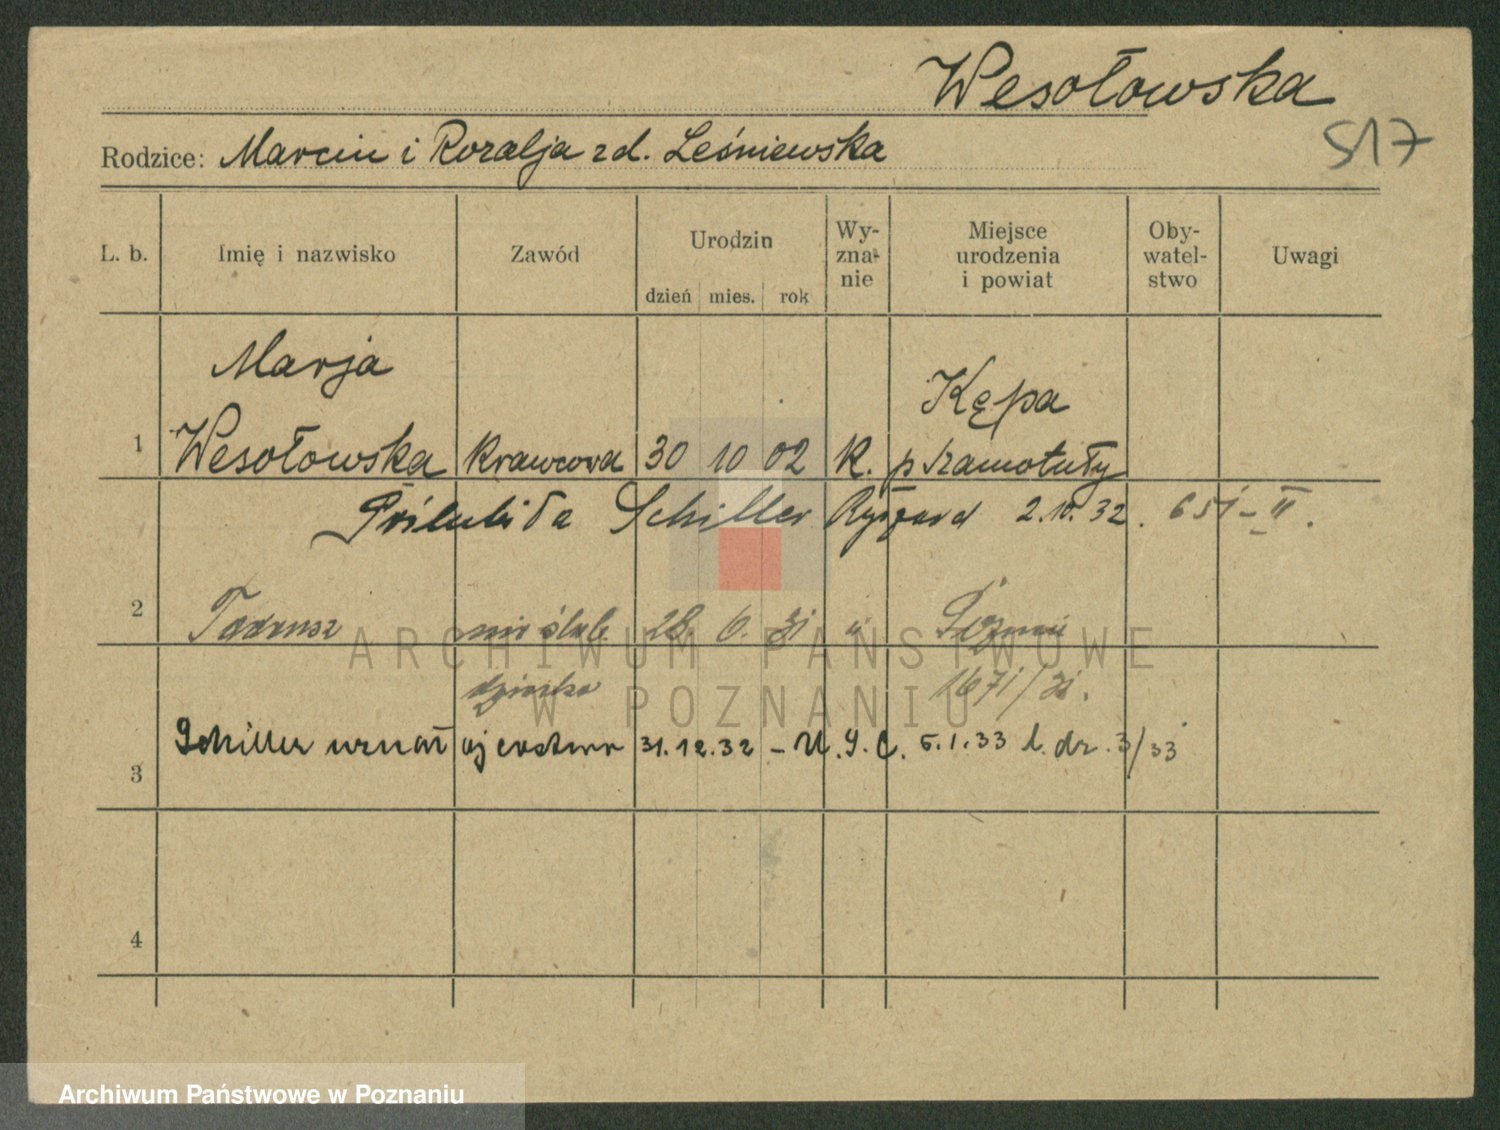 Wesołowska
517
Rodzice: Marcin i Rozalja zd. Leśniewska
L. b. Imię i nazwisko Zawód Urodzin dzień mies. rok Wy-zna-nie Miejsce urodzenia i powiat Oby-watel-stwo Uwagi
Marja Kępa
1 Wesołowska Krawcowa 30 10 02 K. p Szamotuły
Poślubiła Schiller Ryszard 2.10.32. 651-II.
2 Tadeusz nieślub. 28 6. 31 " Poznań
dziecko 1671/31.
Schiller uznał ojcostwo 31.12.32 - U.S.C. 5.1.33 l. dz. 3/33
3
4
ARCHIWUM PAŃSTWOWE
W POZNANIU
Archiwum Państwowe w Poznaniu